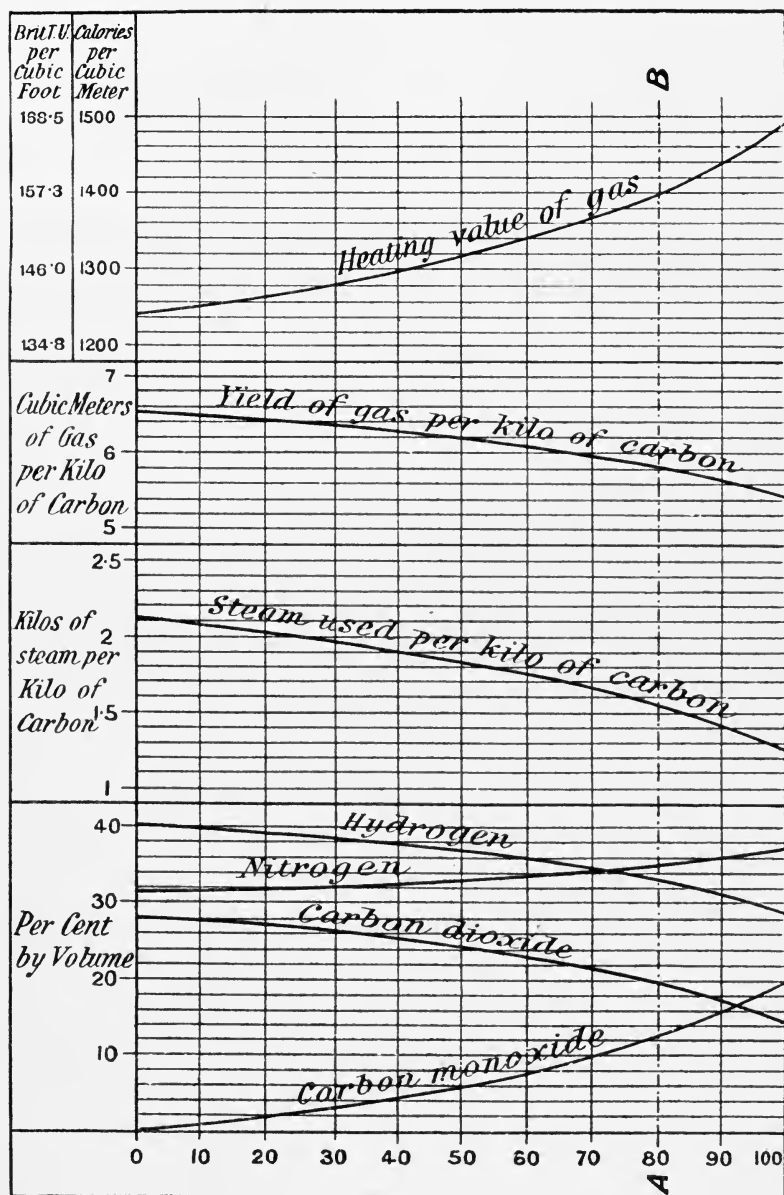 Brit.T.U. per Cubic Foot
Calories per Cubic Meter
B
168·5 1500
157·3 1400
146·0 1300
134·8 1200
Heating value of gas
7
Cubic Meters of Gas per Kilo of Carbon
6
5
Yield of gas per kilo of carbon
2·5
Kilos of steam per Kilo of Carbon
2
1·5
1
Steam used per kilo of carbon
40
30
Per Cent by Volume
20
10
Hydrogen
Nitrogen
Carbon dioxide
Carbon monoxide
0 10 20 30 40 50 60 70 80 90 100
A